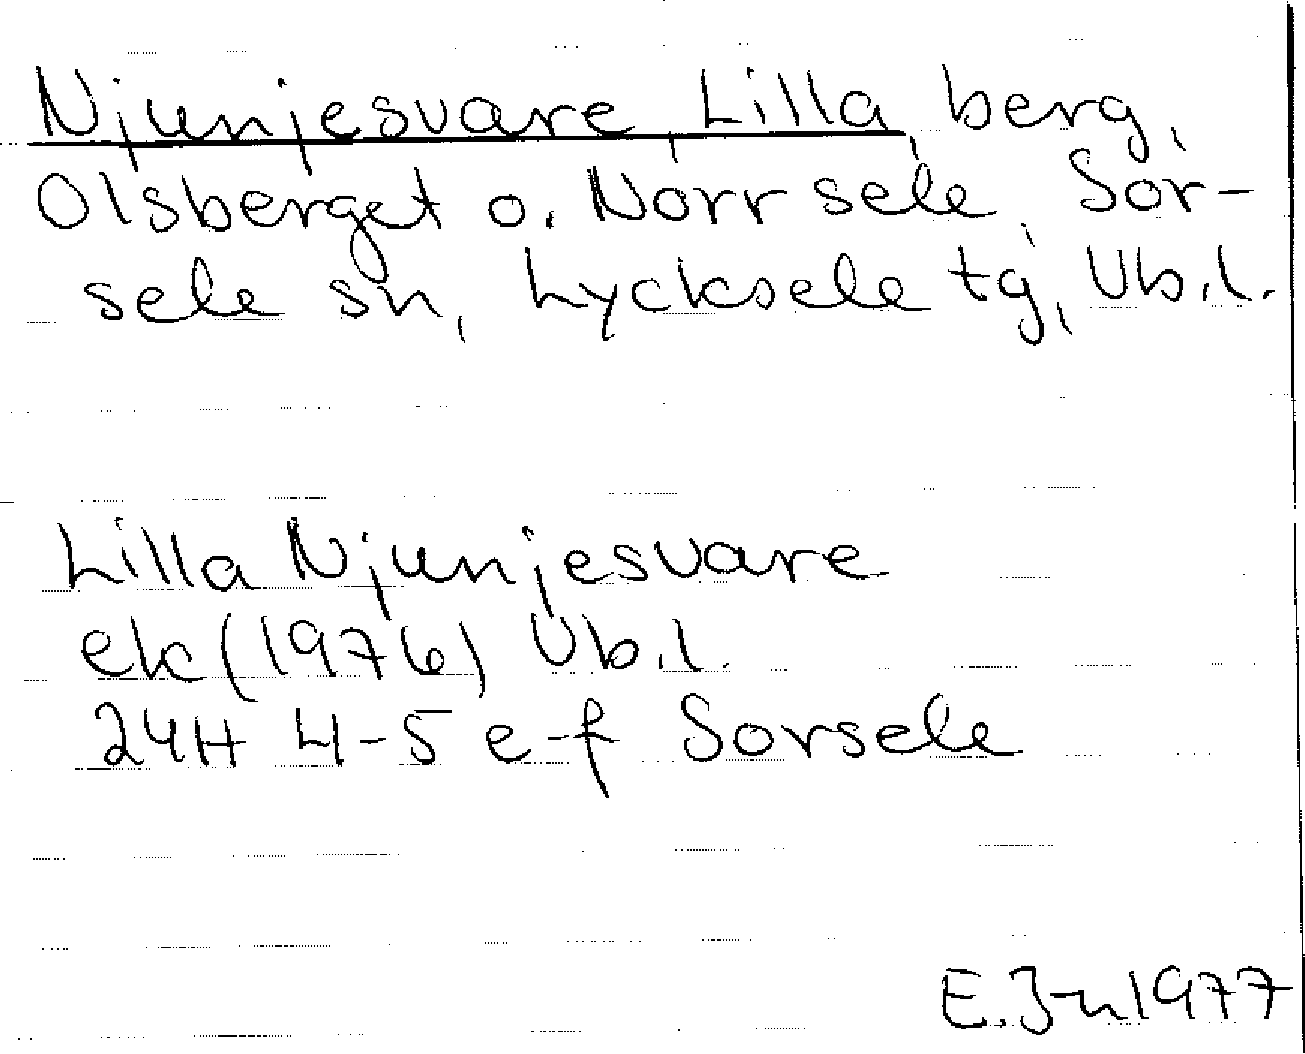 Njunjesvare, Lilla, berg,
Olsberget o. Norrsele, Sor-
sele sn, Lycksele tg, Vb.l.
Lilla Njunjesvare
ek (1976) Vb.l.
24H 4-5 e-f Sorsele
E. J-n 1977